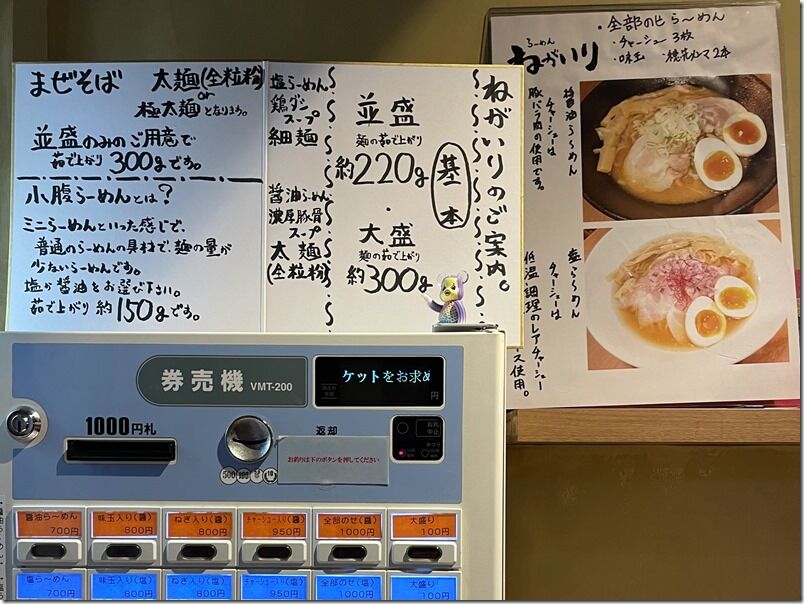 まぜそば 太麺(全粒粉)
or
極太麺となります。
並盛のみのご用意で
茹で上がり300gです。
小腹らーめんとは?
ミニらーめんといった感じで、
普通のらーめんの具材で、麺の量が
少ないらーめんです。
塩か醤油をお選び下さい。
茹で上がり約150gです。
ねがいりのご案内。
基本
並盛
麺の茹で上がり
約220g
・
大盛
麺の茹で上がり
約300g
塩らーめん
鶏ダシ
スープ
細麺
醤油らーめん
濃厚豚骨
スープ
太麺
(全粒粉)
らーめん
ねがいり
・全部のせらーめん
・チャーシュー3枚
・味玉 ・穂先メンマ2本
醤油らーめん
チャーシューは
豚バラ肉の使用です。
塩らーめん
チャーシューは
低温調理のレアチャーシュー
使用。
券売機 VMT-200
ケットをお求め
円
1000円札
返却
お釣りは下のボタンを押してください
500 100 50 10
お札
中止
醤油らーめん 700円
味玉入り(醤) 800円
ねぎ入り(醤) 800円
チャーシュー入り(醤) 950円
全部のせ(醤) 1000円
大盛り 100円
塩らーめん 700円
味玉入り(塩) 800円
ねぎ入り(塩) 800円
チャーシュー入り(塩) 950円
全部のせ(塩) 1000円
大盛り 100円